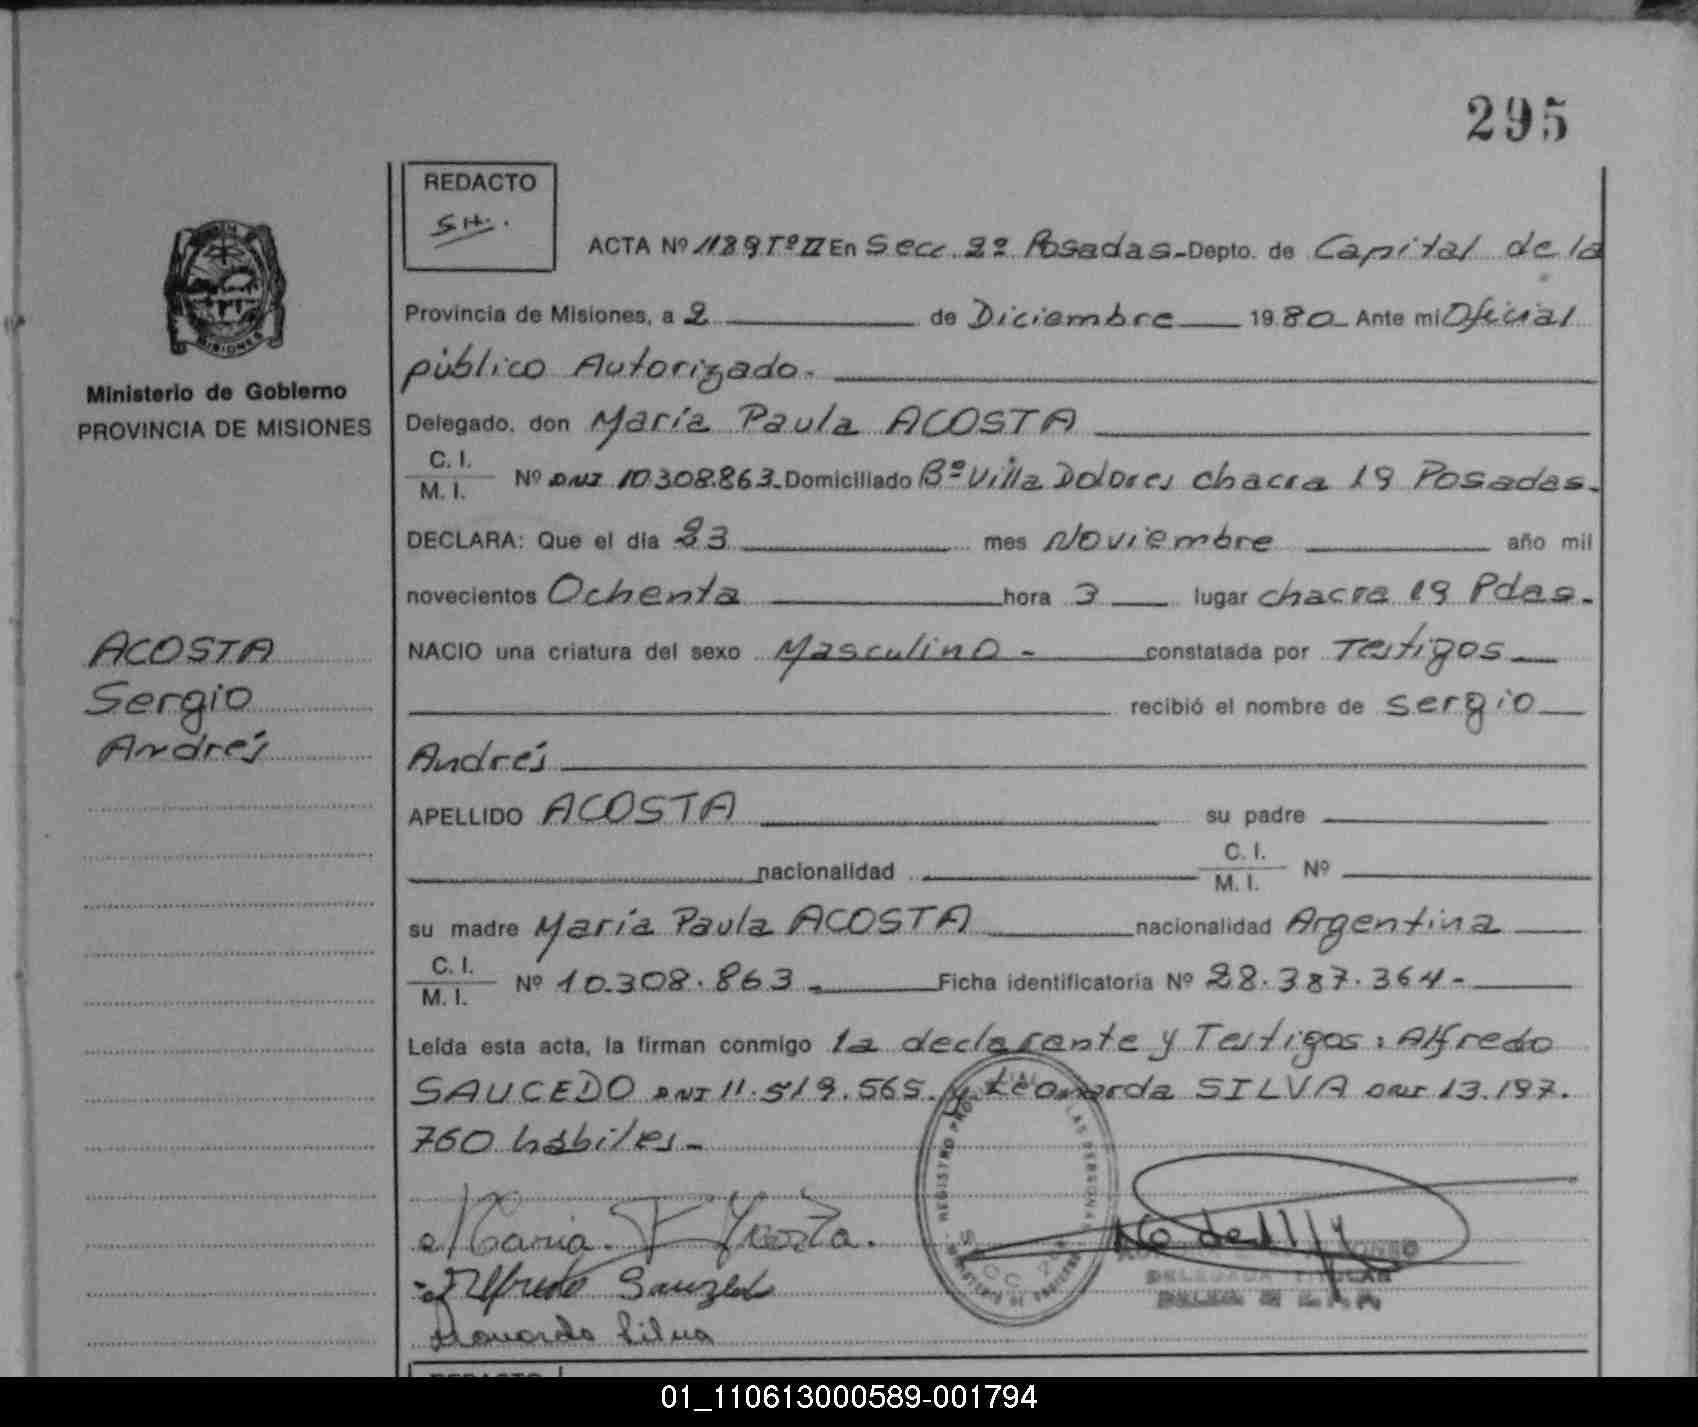 295
REDACTO
SH.
ACTA Nº 1189 Tº II En Secc. 2º Posadas - Depto. de Capital de la
Provincia de Misiones, a 2 de Diciembre 1980 Ante mi Oficial
público Autorizado.
Ministerio de Gobierno
PROVINCIA DE MISIONES
Delegado, don María Paula ACOSTA
C. I.
M. I. Nº DNI 10.308.863. Domiciliado Bº Villa Dolores chacra 19 Posadas.
DECLARA: Que el día 23 mes Noviembre año mil
novecientos Ochenta hora 3 lugar chacra 19 Pdas.
ACOSTA
Sergio
Andrés
NACIO una criatura del sexo Masculino - constatada por Testigos
recibió el nombre de Sergio
Andrés
APELLIDO ACOSTA su padre
nacionalidad C. I.
M. I. Nº
su madre María Paula ACOSTA nacionalidad Argentina
C. I.
M. I. Nº 10.308.863 - Ficha identificatoria Nº 28.387.364 -
Leída esta acta, la firman conmigo la declarante y Testigos: Alfredo
SAUCEDO DNI 11.519.565. y Leonarda SILVA DNI 13.197.
760 hábiles -
Maria. P Acosta.
Alfredo
Silva
REGISTRO
DELEGADA TITULAR
REDACTO
01_110613000589-001794